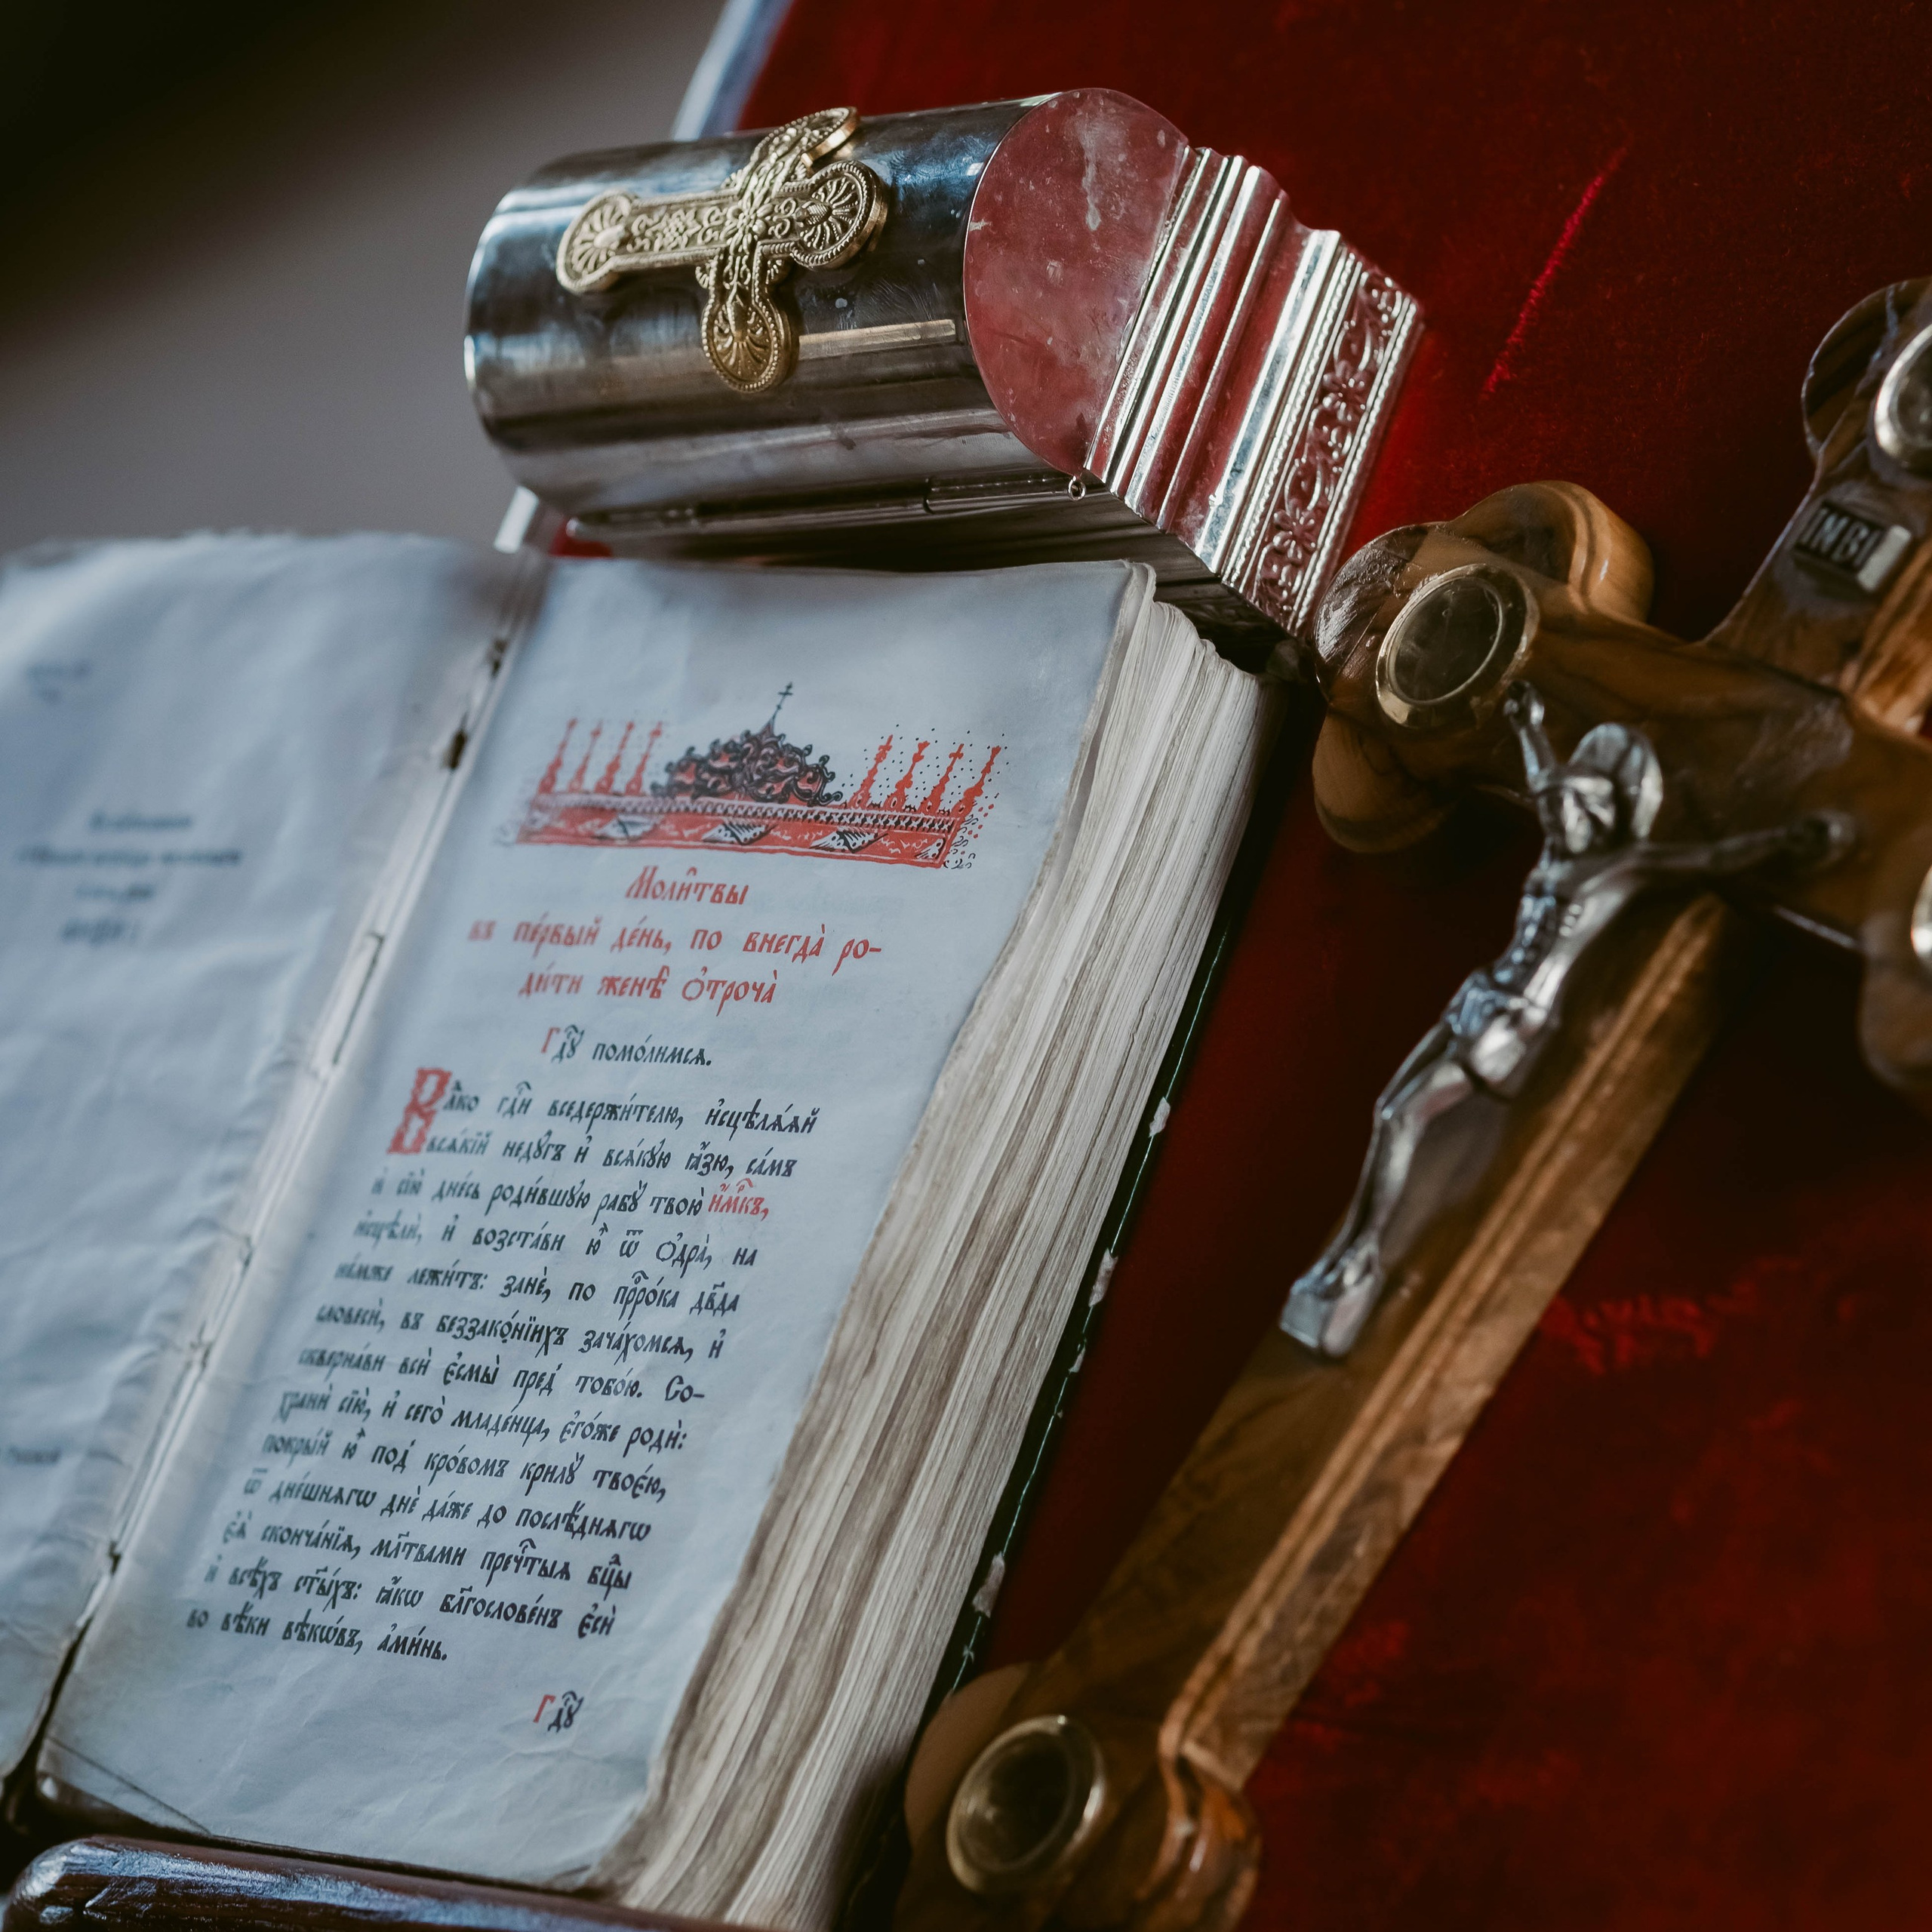 ІНВІ
Моли̑твы
въ пе́рвый де́нь, по внегда̀ ро-
ди́ти женѣ̀ ѻ҆троча̀
Гдⷭ҇ꙋ помо́лимсѧ.
Влⷣко гдⷭ҇и вседержи́телю, и҆сцѣлѧ́ѧй
всѧ́кїй недꙋ́гъ и҆ всѧ́кꙋю ꙗ҆́зю, са́мъ
и҆ сїю̀ дне́сь роди́вшꙋю рабꙋ̀ твою̀ и҆́мкъ,
и҆сцѣлѝ, и҆ возста́ви ю҆̀ ѿ ѻ҆дра̀, на
не́мже лежи́тъ: занѐ, по прⷪ҇ро́ка дв҃да
словесѝ, въ беззако́нїихъ зача́хомсѧ, и҆
скверна́ви всѝ є҆смы̀ пред̾ тобо́ю. Со-
хранѝ сїю̀, и҆ сего̀ младе́нца, є҆го́же родѝ:
покры́й ю҆̀ под̾ кро́вомъ крилꙋ̀ твоє́ю,
ѿ дне́шнѧгѡ днѐ да́же до послѣ́днѧгѡ
є҆ѧ̀ сконча́нїѧ, мл҃твами пречⷭ҇тыѧ бцⷣы
и҆ всѣ́хъ ст҃ы́хъ: ꙗ҆́кѡ блг҃ослове́нъ є҆сѝ
во вѣ́ки вѣкѡ́въ, а҆ми́нь.
Гдⷭ҇ꙋ